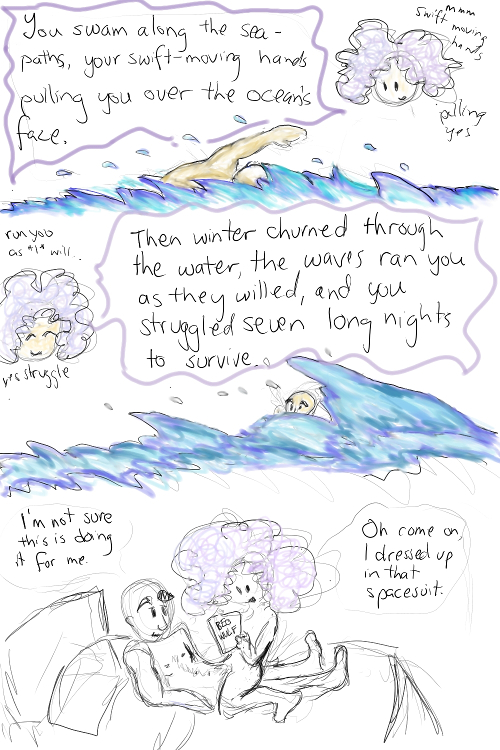 You swam along the sea-
paths, your swift-moving hands
pulling you over the ocean's
face.
mmm
swift moving
hands
pulling
yes
run you
as *I* will...
yes struggle
Then winter churned through
the water, the waves ran you
as they willed, and you
struggled seven long nights
to survive.
I'm not sure
this is doing
it for me.
Oh come on,
I dressed up
in that
spacesuit.
BEO
WULF